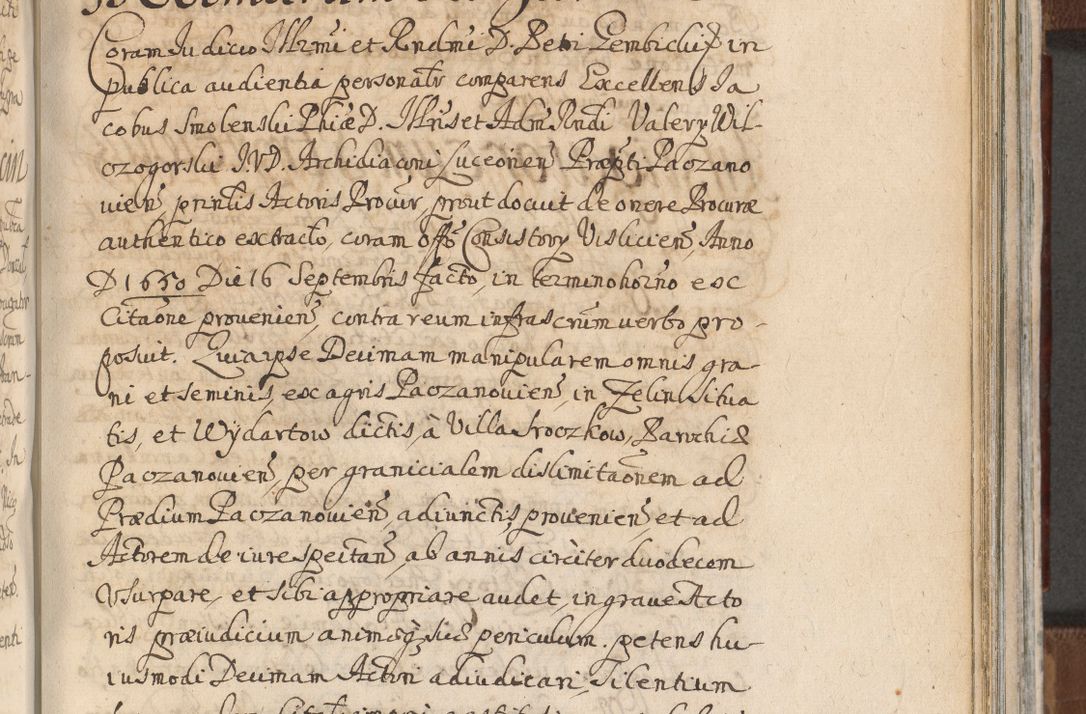 Coram Judicio Illrmi et Rndmi D. Petri Gembicki in
publica audientia personalr comparens Excellens Ja
cobus Smolenski Phiæ D. Illris et Adm Rndi Valery Wil-
czogorski J.V.D. Archidiaconi Luceorien Præpti Paczano
vien, prinlis Actoris Procur, prout docuit de onere Procuræ
authentico exctracto, coram offo Consistory Vislicien, Anno
D 1650 Die 16 Septembris facto, in termino horno exc
Citaone provenien, contra reum infrascrium verbo pro-
posuit. Quia ipse Decimam manipularem omnis gra-
ni et seminis, exc agris Paczanovien, in Zelin situa
tis, et Wydartow dictis, à Villa Sroczkow, Parochiæ
Paczanovien, per granicialem dislimitaonem ad
Prædium Paczanovien, adiunctis, provenien, et ad
Actorem de iure spectan, ab annis circiter duodecem
Usurpare, et sibi appropriare audet, in grave Acto
ris præiudicium animæq suæ periculum. petens hu-
iusmodi Decimam Actori adiudicari, Silentium